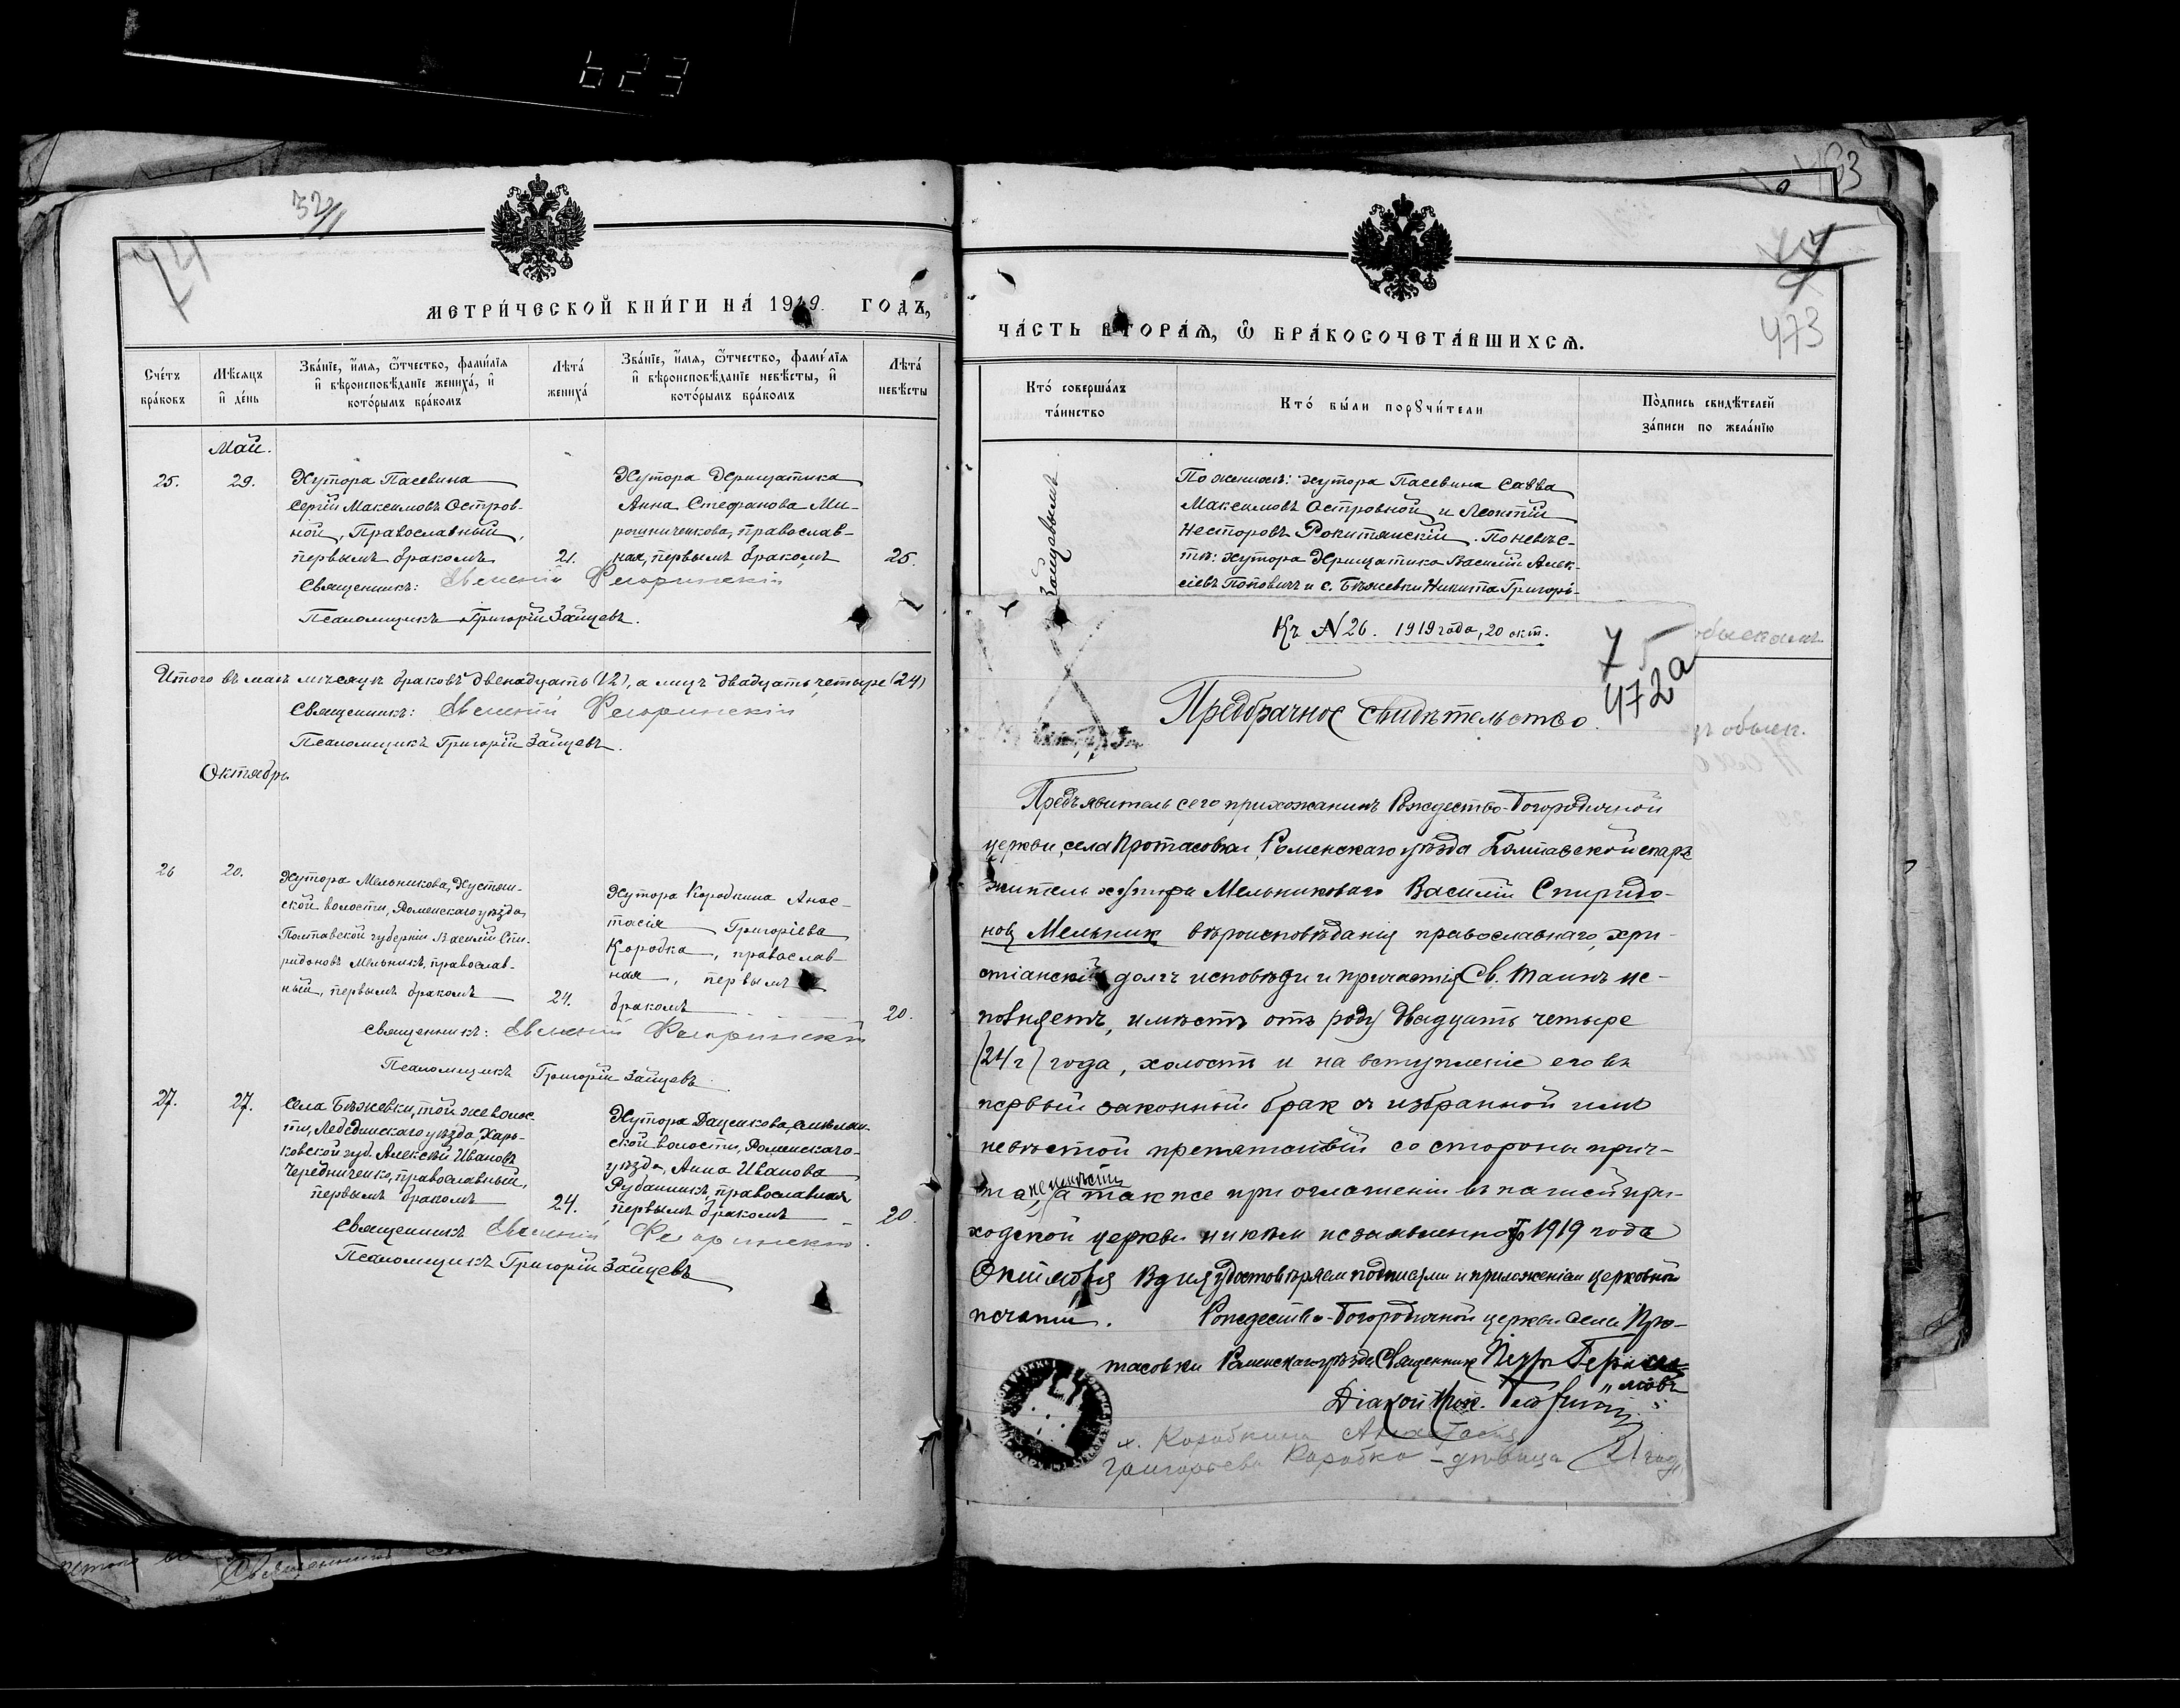 623
74
32
МЕТРИ́ЧЕСКОЙ КНИ́ГИ НА́ 1919 ГОДЪ,
Сче́тъ бра́ковъ
Мѣ́сяцъ и҆ де́нь
Зва́нїе, и҆́мя, ѻ҆́тчество, фами́лїя
и҆ вѣроисповѣ́данїе жениха̀, и҆
кото́рымъ бра́комъ
Лѣта̀ жениха̀
Зва́нїе, и҆́мя, ѻ҆́тчество, фами́лїя
и҆ вѣроисповѣ́данїе невѣ́сты, и҆
кото́рымъ бра́комъ
Лѣта̀ невѣ́сты
Май.
25.
29.
Хутора Пасевина
Сергій Максимовъ Остров-
ной, Православный,
первымъ бракомъ
21.
Хутора Хрищатика
Анна Стефанова Ми-
рошниченкова, православ-
ная, первымъ бракомъ
25.
Священникъ: Евгеній
Псаломщикъ Григорій Зайцевъ.
Итого въ маѣ мѣсяцѣ браковъ двенадцать (12), а лицъ двадцать четыре (24)
Священникъ: Евгеній
Псаломщикъ Григорій Зайцевъ.
Октябрь
26
20.
Хутора Мельникова,
ской волости, Роменскаго уѣзда,
Полтавской губерніи Василій Спи-
ридоновъ Мельникъ, православ-
ный, первымъ бракомъ
24.
Хутора Коробкина Анас-
тасія Григоріева
Коробка, православ-
ная, первымъ
бракомъ
20.
Священникъ: Евгеній
Псаломщикъ Григорій Зайцевъ.
27.
27.
Села Бѣжевки, той же волос-
ти, Лебединскаго уѣзда, Харь-
ковской губ. Алексѣй Ивановъ
Чередниченко, православный,
первымъ бракомъ
24.
Хутора Даценкова,
ской волости, Роменскаго
уѣзда, Анна Иванова
православная
первымъ бракомъ
20.
Священникъ Евгеній
Псаломщикъ Григорій Зайцевъ
ЧА́СТЬ ВТОРА́Я, Ѡ҆ БРАКОСОЧЕТА́ВШИХСЯ.
473
Кто̀ соверша́лъ
та́инство
Кто̀ бы́ли порꙋчи́тели
По́дпись свидѣ́телей
за́писи по жела́нїю
Зайцевымъ
По женихѣ: хутора Пасевина Савва
Максимовъ Островной и Леонтій
Несторовъ Рокитянскій. По невѣс-
тѣ: хутора Хрищатика Василій Алек-
сіевъ Поповичъ и с. Бѣжевки Никита Григорь-
Къ №26. 1919 года, 20 окт.
75
472а
Предбрачное свидѣтельство.
Предъявитель сего прихожанинъ Рождество-Богородичной
церкви, села Протасовки, Роменскаго уѣзда Полтавской епарх
житель хутора Мельниковаго Василій Спиридо-
новъ Мельник вѣроисповѣданія православнаго, хри-
стіанскій долгъ исповѣди и причастія Св. Таинъ ис-
полняетъ, имѣетъ отъ роду двадцать четыре
(24 г) года, холостъ и на вступленіе его въ
первый законный брак съ избранной имъ
невѣстой препятствій со стороны прич-
та не имѣется, а также при оглашеніи въ нашей при-
ходской церкви никѣм не заявлено, 1919 года
Октября удостовѣряем подписями и приложеніем церковной
печати. Рождество-Богородичной церкви села Про-
тасовки Роменскаго уѣзда Священник Петръ
Діакон
х. Коробкина Анастасія
Григорьева Коробка - дѣвица 21 год